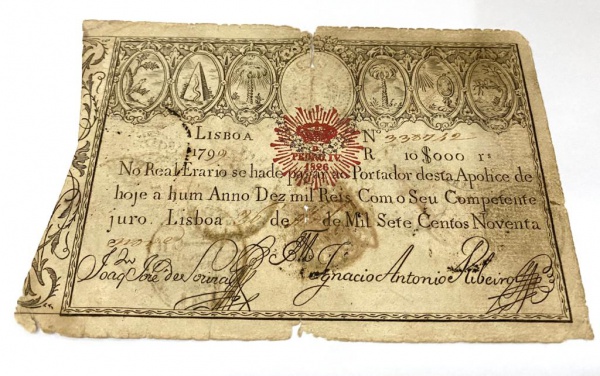 LISBOA Nº 338742
179 R. 10$000 rˢ
D
PEDRO IV
1826
No Real Erario se hade pagar ao Portador desta Apolice de
hoje a hum Anno Dez mil Reis Com o Seu Competente
juro. Lisboa de de Mil Sete Centos Noventa
Joaq.ᵐ José de Souza Ignacio Antonio Ribeiro